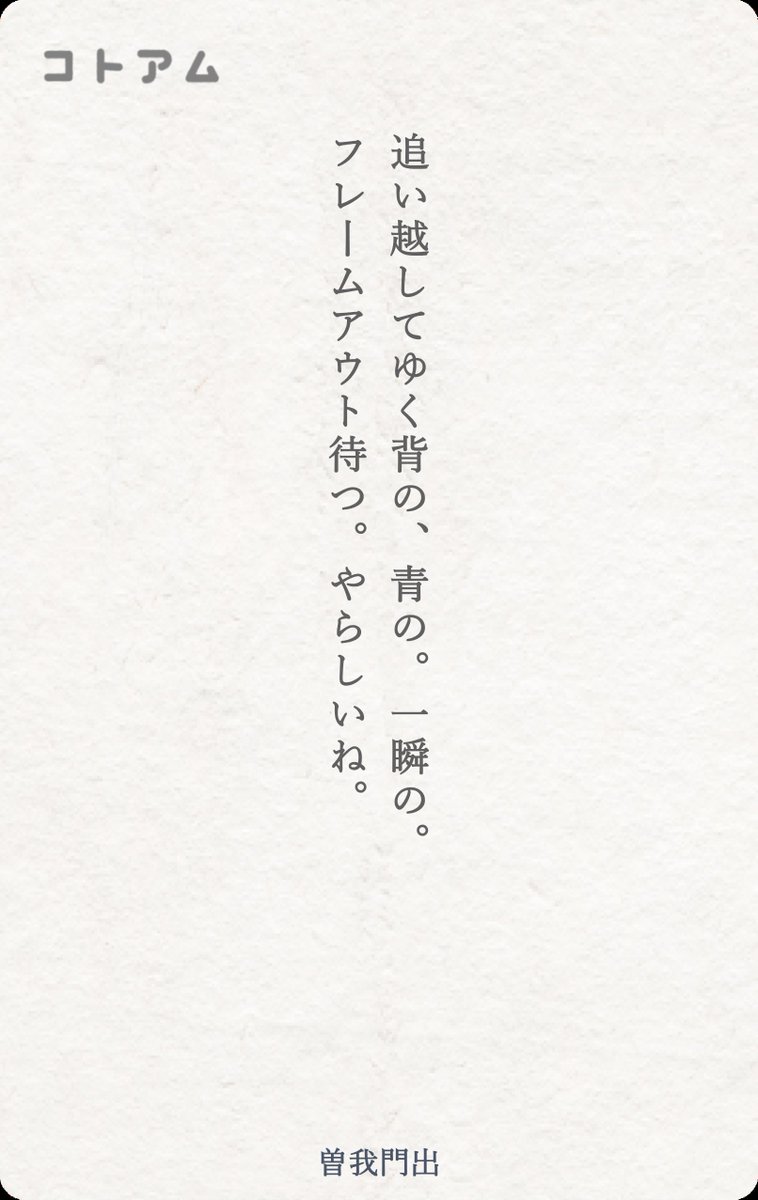 コトアム
追い越してゆく背の、青の。一瞬の。
フレームアウト待つ。やらしいね。
曽我門出